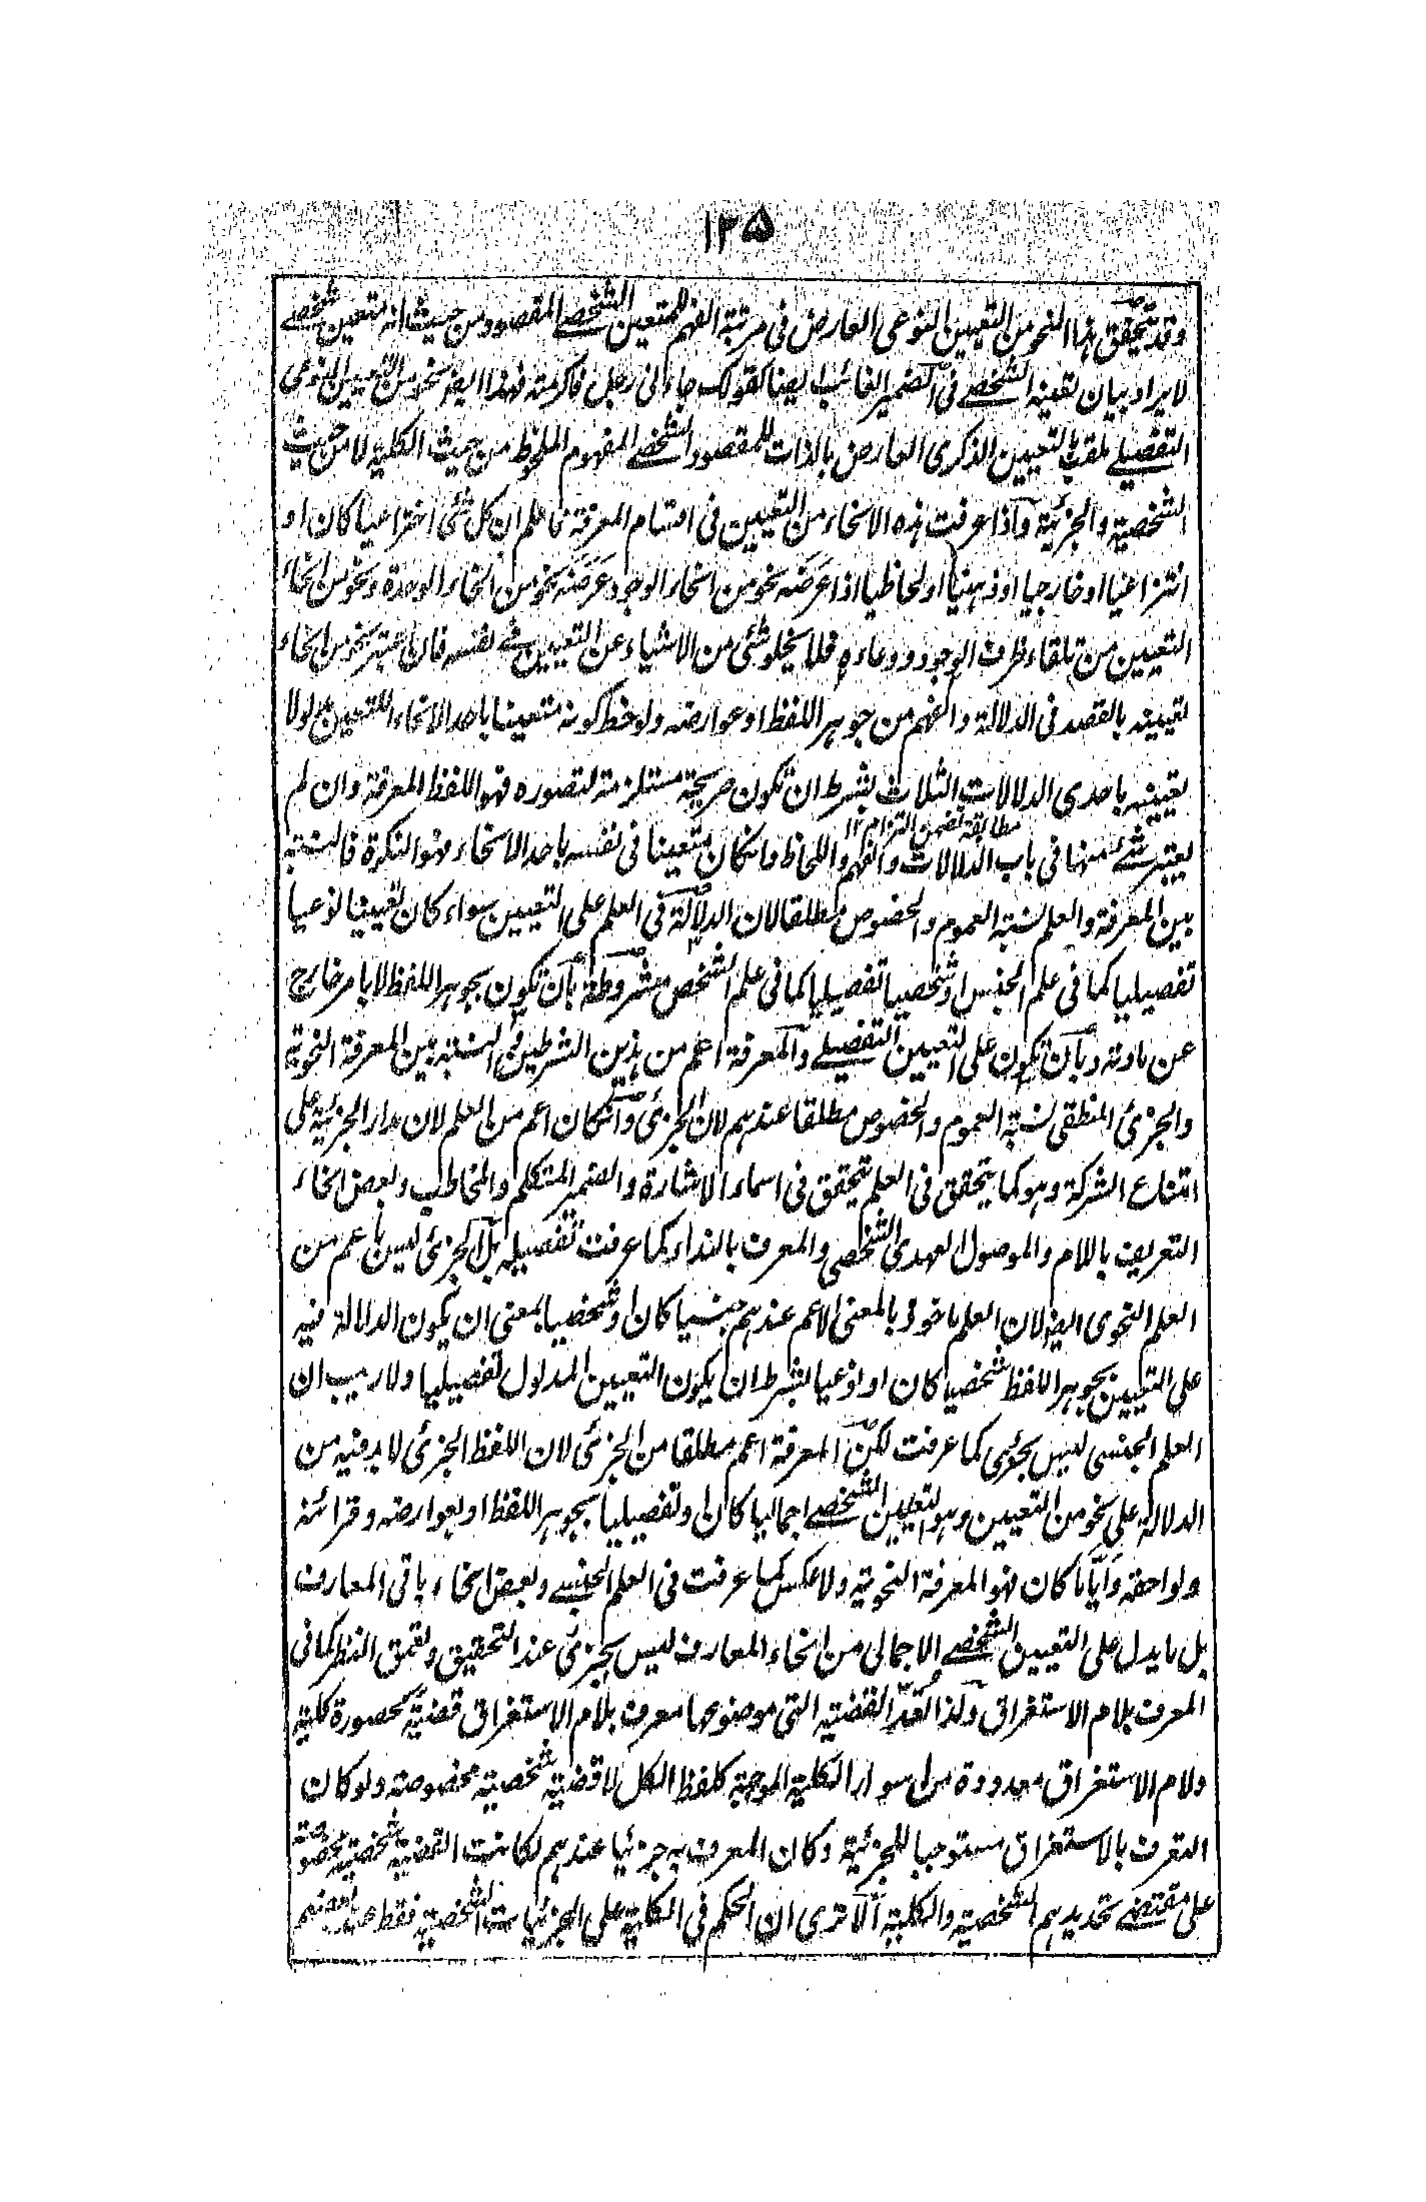 ١٢٥
وقد يتحقق هذا النحو من التعيين النوعى العارض فى مرتبة الفهم للمتعين الشخصے المقصود من حيث انہ متعين شخصے
لا يراد بيان تعينہ الشخصے فى الضمير الغائب ايضا كقولك جاءنى رجل فاكرمتہ فهذا ايضا نحو من التعيين النوعى
التفصيلے يلقب بالتعيين الذكرى العارض بالذات للمقصود الشخصے المفهوم الملحوظ من حيث الكلية لا من حيث
الشخصية والجزئية وآذا عرفت هذه الانحاء من التعيين فى اقسام المعرفة فاعلم ان كل شئى اختراعيا كان او
انتزاعيا او خارجيا او ذهنيا او لحاظيا اذا عَرَضَہ نحو من انحاء الوجود عَرَضَہ نحو من انحاء الوحدة ونحو من انحاء
التعيين من تلقاء ظرف الوجود ووعاءه فلا يخلو شئى من الاشياء عن التعيين فے نفسہ فان اعتبر نحو من انحاء
تعيينہ بالقصد فى الدلالة والفهم من جوهر اللفظ او عوارضہ ولوحظ كونہ متعينا باحد الانحاء للتعيين مدلولا
تعيينہ باحدى الدلالات الثلاث بشرط ان تكون صريحية مستلزمة لتصوره فهو اللفظ المعرفة وان لم
مطابقة تضمن التزام ١٢
يعتبر شے منها فى باب الدلالات والفهم واللحاظ وانكان متعينا فى نفسہ باحد الانحاء فهو النكرة فالنسبة
بين المعرفة والعلم نسبة العموم والخصوص مطلقا لان الدلالة فى العلم على التعيين سواء كان تعيينا نوعيا
تفصيليا كما فى علم الجنس او شخصيا تفصيليا كما فى علم الشخص مشروطة بان تكون بجوهر اللفظ لا بامر خارج
عن مادتہ وبان تكون على التعيين التفصيلے والمعرفة اعم من هذين الشرطين والنسبة بين المعرفة النحوية
والجزئى المنطقى نسبة العموم والخصوص مطلقا عندهم لان الجزئى وانكان اعم من العلم لان مدار الجزئية على
امتناع الشركة وهو كما يتحقق فى العلم يتحقق فى اسماء الاشارة والضمير المتكلم والمخاطب وبعض انحاء
التعريف باللام والموصول العهدى الشخصى والمعرف بالنداء كما عرفت تفصيلہ بل الجزئى ليس باعم من
العلم النحوى ايضا لان العلم ماخوذ بالمعنى الاعم عندهم جنسيا كان او شخصيا بمعنى ان يكون الدلالة فيہ
على التعيين بجوهر اللفظ شخصيا كان او نوعيا بشرط ان يكون التعيين المدلول تفصيليا ولا ريب ان
العلم الجنسى ليس بجزئى كما عرفت لكن المعرفة اعم مطلقا من الجزئى لان اللفظ الجزئى لا بد فيہ من
الدلالة على نحو من التعيين وهو التعيين الشخصے اجماليا كان او تفصيليا بجوهر اللفظ او بعوارضہ وقرائنہ
ولواحقہ وَايّاما كان فهو المعرفة النحوية ولا عكس كما عرفت فى العلم الجنسے وبعض انحاء باقى المعارف
بل ما يدل على التعيين الشخصے الاجمالى من انحاء المعارف ليس بجزئى عند التحقيق وتعمق النظر كما فى
المعرف بلام الاستغراق ولذا تُعَدُّ القضية التى موضوعها معرف بلام الاستغراق قضية محصورة كلية
ولام الاستغراق معدودة من اسوار الكلية الموجبة كلفظ الكل لا قضية شخصية مخصوصة ولو كان
التعرف بالاستغراق مستوجبا للجزئية وكان المعرف بہ جزئيا عندهم لكانت القضية شخصية مخصوصة
على مقتضے تحديدهم الشخصية والكلية اَلَا ترى ان الحكم فى الكلية على الجزئيات الشخصية فقط عند بعضهم